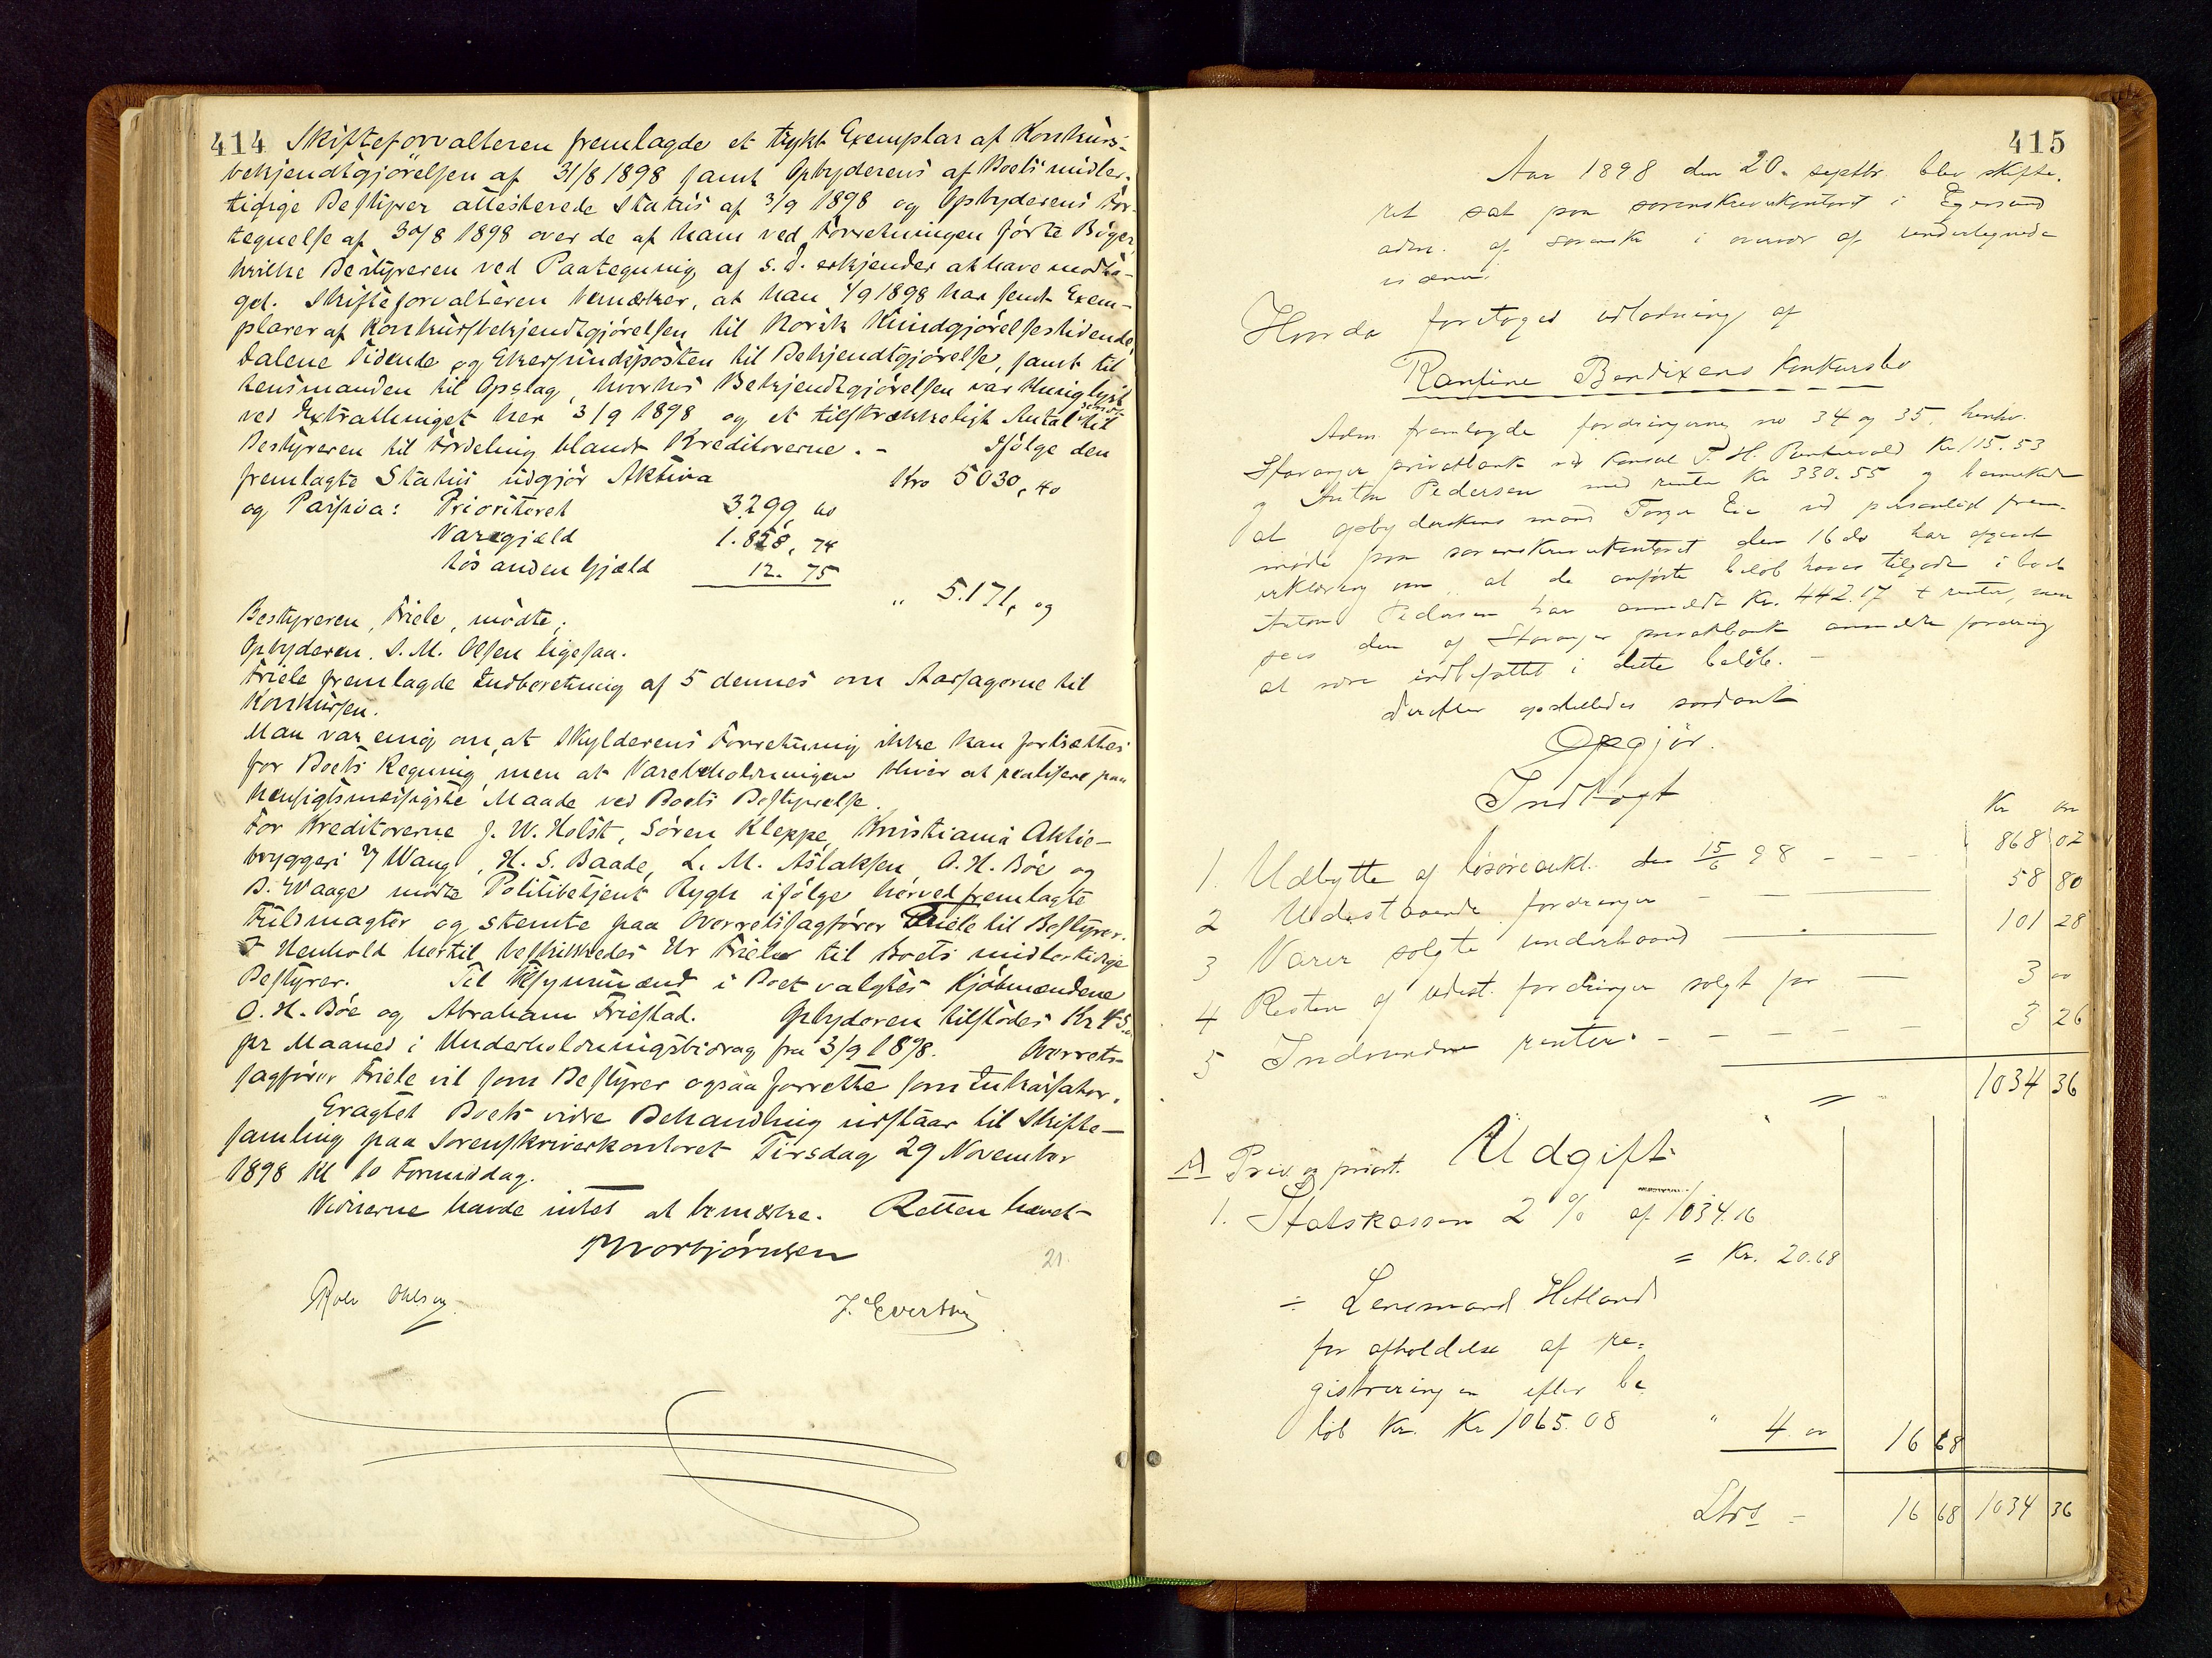 414 Skifteforvalteren fremlagde et trykt Exemplar af Konkurs-
bekjendtgjørelsen af 31/8 1898 samt Opbyderens af Boets midler-
tidige Bestyrer attesterede Status af 3/9 1898 og Opbyderens For-
tegnelse af 30/8 1898 over de af ham ved Forretningen førte Bøger,
hvilke Bestyreren ved Paategning af s. d. erkjender at have modta-
get. Skifteforvalteren bemærker, at han 1/9 1898 har sendt Exem-
plarer af Konkursbekjendtgjørelsen til Norsk Kundgjørelsestidende,
Dalene Tidende og Ekersundsposten til Bekjendtgjørelse, samt til
Lensmanden til Opslag, hvorhos Bekjendtgjørelsen var thinglyst
ved Extrathinget her 3/9 1898 og et tilstrækkeligt Antal sendt til
Bestyreren til Fordeling blandt Kreditorerne. - Ifølge den
fremlagte Status udgjør Aktiva Kro 5030,40
og Passiva: Prioriteret 3299,00
Varegjæld 1.858,74
løs anden Gjæld 12.75
" 5.171, og
Bestyreren, Friele, mødte;
Opbyderen, S. M. Olsen ligesaa.
Friele fremlagde Indberetning af 5 dennes om Aarsagerne til
Konkursen.
Man var enig om, at Skylderens Forretning ikke kan fortsættes
for Boets Regning, men at Varebeholdningen bliver at realisere paa
hensigtsmæssigste Maade ved Boets Bestyrelse.
For Kreditorerne J. W. Holst, Søren Kleppe, Kristiania Aktie-
bryggeri v/ Wang, H. S. Baade, L. M. Aslaksen, O. H. Bøe og
B. Waage mødte Politibetjent Rygh ifølge herved fremlagte
Fuldmagter og stemte paa Overretssagfører Friele til Bestyrer.
I Henhold hertil beskikkedes Hr Friele til Boets midlertidige
Bestyrer. Til Tilsynsmænd i Boet valgtes Kjøbmændene
O. H. Bøe og Abraham Friestad. Opbyderen tilstodes Kr 45.
pr Maaned i Underholdningsbidrag fra 3/9 1898. Overrets-
sagfører Friele vil som Bestyrer ogsaa forrette som Inkassator.
Eragtet Boets vidre Behandling udstaar til Skifte-
samling paa Sorenskriverkontoret Tirsdag 29 November
1898 Kl 10 Formiddag.
Vidnerne havde intet at bemærke. Retten hævet
Morbjørnsen
21.
Rolv Olsen J. Evertsen
415
Aar 1898 den 20. septbr. blev skifte-
ret sat paa sorenskriverkontoret i Egersund
adm. af sorenskr. i overvær af undertegnede
vidner.
Hvorda foretoges udlodning af
Rasine Bendixens Konkursbo
Adm. fremlagde fordringerne no 34 og 35, henhv.
Stavanger privatbank ved konsul P. H. Puntervold Kr. 115.53
og Anton Pedersen med renter Kr 330.55 og bemærkede
at opbyderskens mand Torger Eie ved personlig frem-
møde paa sorenskriverkontoret den 16 ds har afgivet
erklæring om at de anførte beløb haves tilgode i boet
Anton Pedersen har anmeldt Kr. 442.17 + renter, men
sees den af Stavanger privatbank anmeldte fordring
at være indbefattet i dette beløb. -
Derefter opstilledes saadant
Opgjør.
Indtægt
Kr øre
1. Udbytte af løsøreaukt. den 15/6 98 - - - 868 02
2 Udestaaende fordringer - 58 80
3 Varer solgte underhaand 101 28
4 Resten af udest. fordringer solgt for 3 00
5 Indvundne renter - - - - - 3 26
1034 36
Udgift
A Priv. og priort.
1. Statskassen 2 % af 1034.16
= Kr. 20.68
÷ Lensmand Hetland
for afholdelse af re-
gistreringen efter be
løb Kr. Kr 1065.08 " 4 00 16 68
Ltrs - 16 68 1034 36